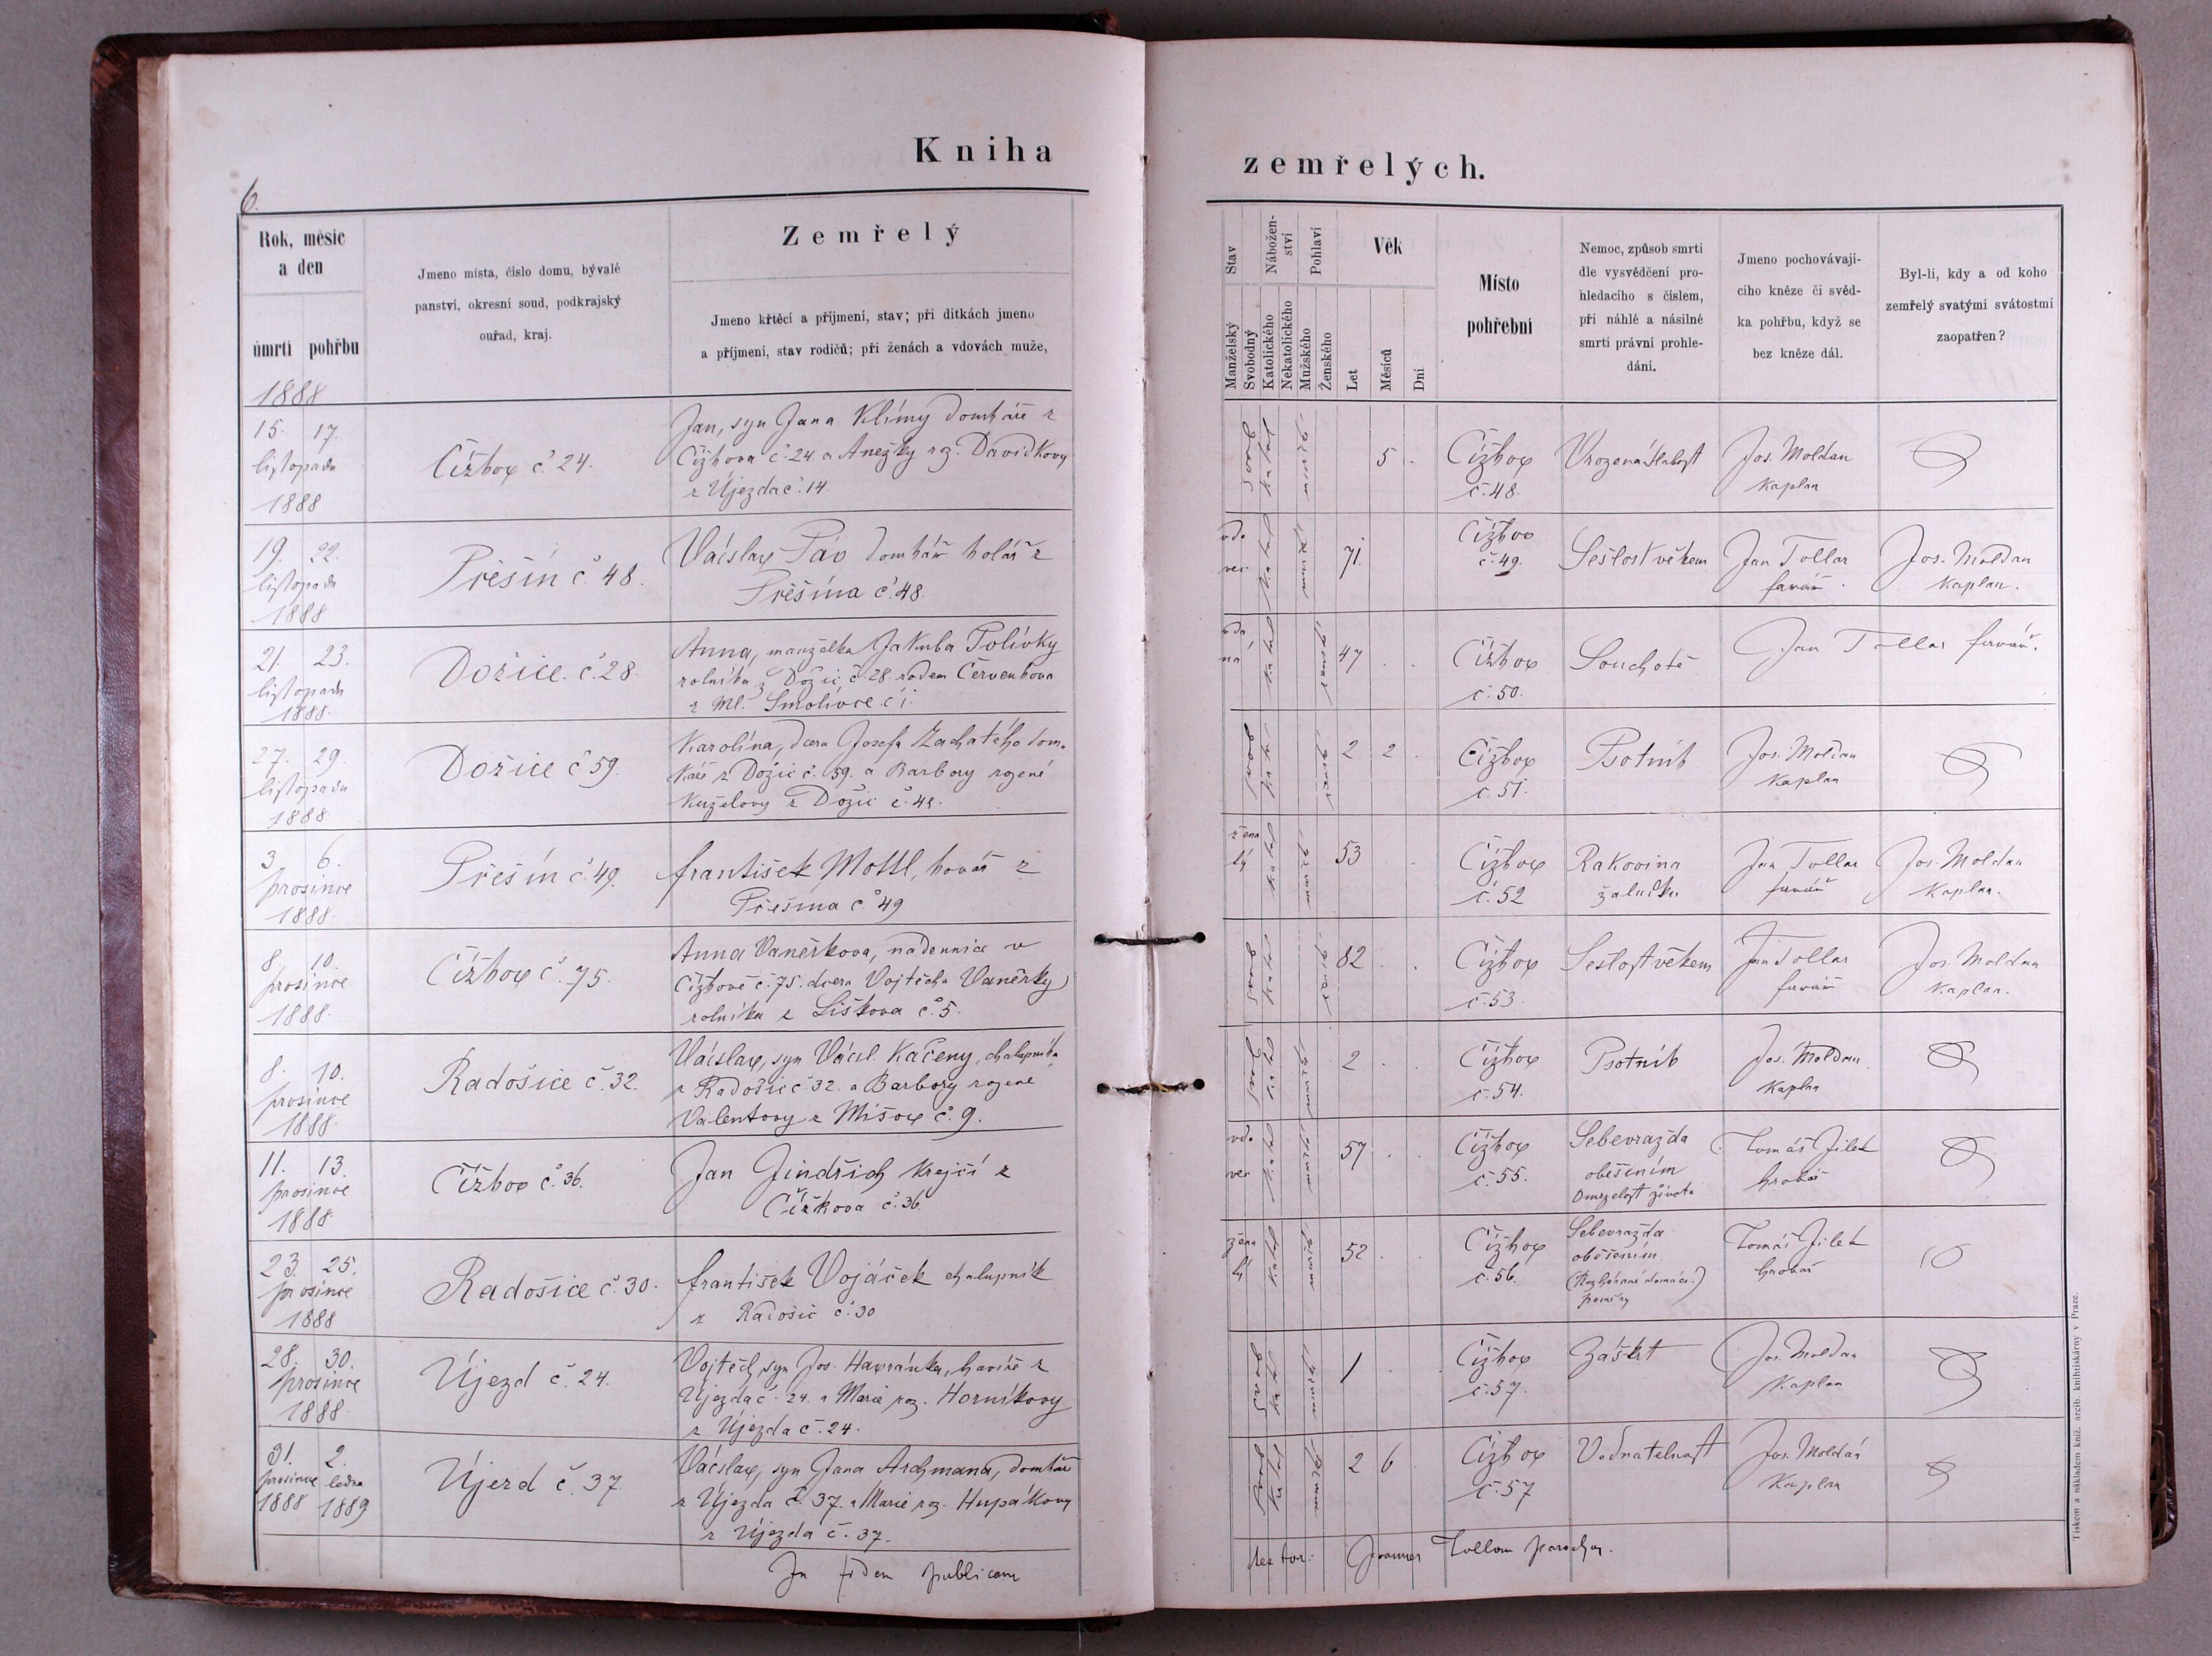 Kniha
zemřelých.
6.
Rok, měsíc
a den
úmrtí pohřbu
Jmeno místa, číslo domu, bývalé
panství, okresní soud, podkrajský
ouřad, kraj.
Zemřelý
Jmeno křtěcí a přijmení, stav; při dítkách jmeno
a příjmení, stav rodičů; při ženách a vdovách muže,
Stav
Manželský
Svobodný
Nábožen-
ství
Katolického
Nekatolického
Pohlaví
Mužského
Ženského
Věk
Let
Měsíců
Dní
Místo
pohřební
Nemoc, způsob smrti
dle vysvědčení pro-
hledacího s číslem,
při náhlé a násilné
smrti právní prohle-
dání.
Jmeno pochovávají-
cího kněze či svěd-
ka pohřbu, když se
bez kněze dál.
Byl-li, kdy a od koho
zemřelý svatými svátostmi
zaopatřen?
1888
15. 17.
listopadu
1888
Čížkov č. 24.
Jan, syn Jana Klímy domkáře z
Čížkova č. 24. a Anežky roz. Davidkovy
z Újezda č. 14.
svob katol mužsk
5
Čížkov
č. 48.
Vrozená slabost
Jos. Moldan
kaplan
19. 22.
listopadu
1888
Přešín č. 48.
Václav Páv domkář kolář z
Přešína č. 48.
vdo
vec
katol mužsk
71.
Čížkov
č. 49.
Sešlost věkem
Jan Tollar
farář.
Jos. Moldan
kaplan.
21. 23.
listopadu
1888.
Dožice. č. 28.
Anna, manželka Jakuba Polívky
rolníka z Dožic č. 28 rodem Červenkova
z Ml. Smolivce č. 1.
vda
ná
katol žensk
47
Čížkov
č. 50.
Souchotě
Jan Tollar farář.
27. 29.
listopadu
1888
Dožice č. 59.
Karolína, dcera Josefa Zachatého dom-
káře z Dožic č. 59. a Barbory rozené
Kuželovy z Dožic č. 48.
svob kato žensk
2 2
Čížkov
č. 51.
Psotník
Jos. Moldan
kaplan
3 6.
prosince
1888.
Přešín č. 49.
František Mottl, kovář z
Přešína č. 49
žena
tý
katol mužsk
53
Čížkov
č. 52
Rakovina
žaludku
Jan Tollar
farář
Jos. Moldan
kaplan.
8 10.
prosince
1888.
Čížkov č. 75.
Anna Vanerkova, nadennice v
Čížkově č. 75. dcera Vojtěcha Vaněrky
rolníka z Liškova č. 5.
svob katol žensk
82
Čížkov
č. 53.
Sešlost věkem
Jan Tollar
farář
Jos. Moldan
kaplan.
8. 10.
prosince
1888.
Radošice č. 32.
Václav, syn Václ. Kačeny, chalupníka
z Radošic č. 32. a Barbory rozené
Valentovy z Míšov č. 9.
svob katol mužsk
2
Čížkov
č. 54.
Psotník
Jos. Moldan
kaplan
11. 13.
prosince
1888.
Čížkov č. 36.
Jan Jindřich krejčí z
Čížkova č. 36.
vdo
vec
katol mužsk
57
Čížkov
č. 55.
Sebevražda
oběšením
Omrzelost života
Tomáš Jílek
hrobař
23. 25.
prosince
1888
Radošice č. 30.
František Vojáček chalupník
z Radošic č. 30
žena
tý
katol mužsk
52
Čížkov
č. 56.
Sebevražda
oběšením
(Rozhárané domácí)
poměry
Tomáš Jílek
hrobař
28. 30.
prosince
1888.
Újezd č. 24.
Vojtěch, syn Jos. Havránka, havíře z
Újezda č. 24. a Marie roz. Horníkovy
z Újezda č. 24.
svob katol mužsk
1
Čížkov
č. 57.
Záškrt
Jos. Moldan
kaplan
31. 2.
prosince ledna
1888 1889
Újezd č. 37
Václav, syn Jana Archmana, domkáře
z Újezda č. 37. a Marie roz. Hupákovy
z Újezda č. 37.
svob katol mužsk
2 6
Čížkov
č. 57
Vodnatelnost
Jos. Moldan
kaplan
In fidem publicam
Joannes Tollar parochus.
Tiskem a nákladem kníž. arcib. knihtiskárny v Praze.